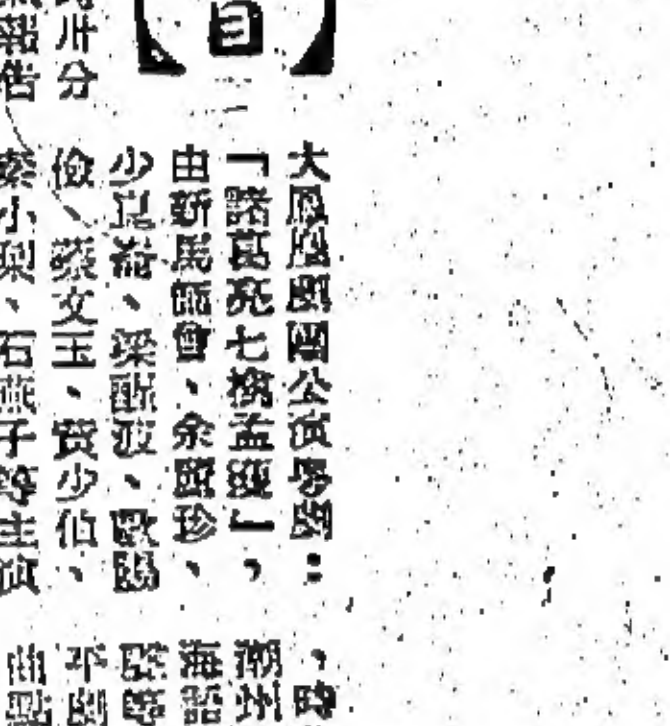 目
大鳳凰劇團公演粵劇：
「諸葛亮七擒孟獲」，
由新馬師曾、余麗珍、
少崑崙、梁醒波、歐陽
儉、蔡文玉、少伯、
秦小梨、石燕子等主演
卅分
報告
，時
潮州
海話
平劇
曲點